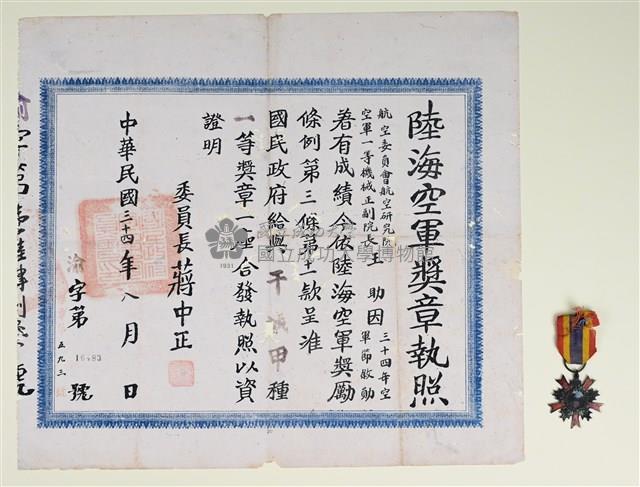 陸海空軍獎章執照
航空委員會航空研究院
空軍一等機械正副院長王助因三十四年空
軍節敘勳
著有成績今依陸海空軍獎勵
條例第三條第十款呈准
國民政府給與干城甲種
一等獎章一座合發執照以資
證明
委員長蔣中正
中華民國三十四年八月 日
渝字第 16483 號
國立成功大學博物館
1931